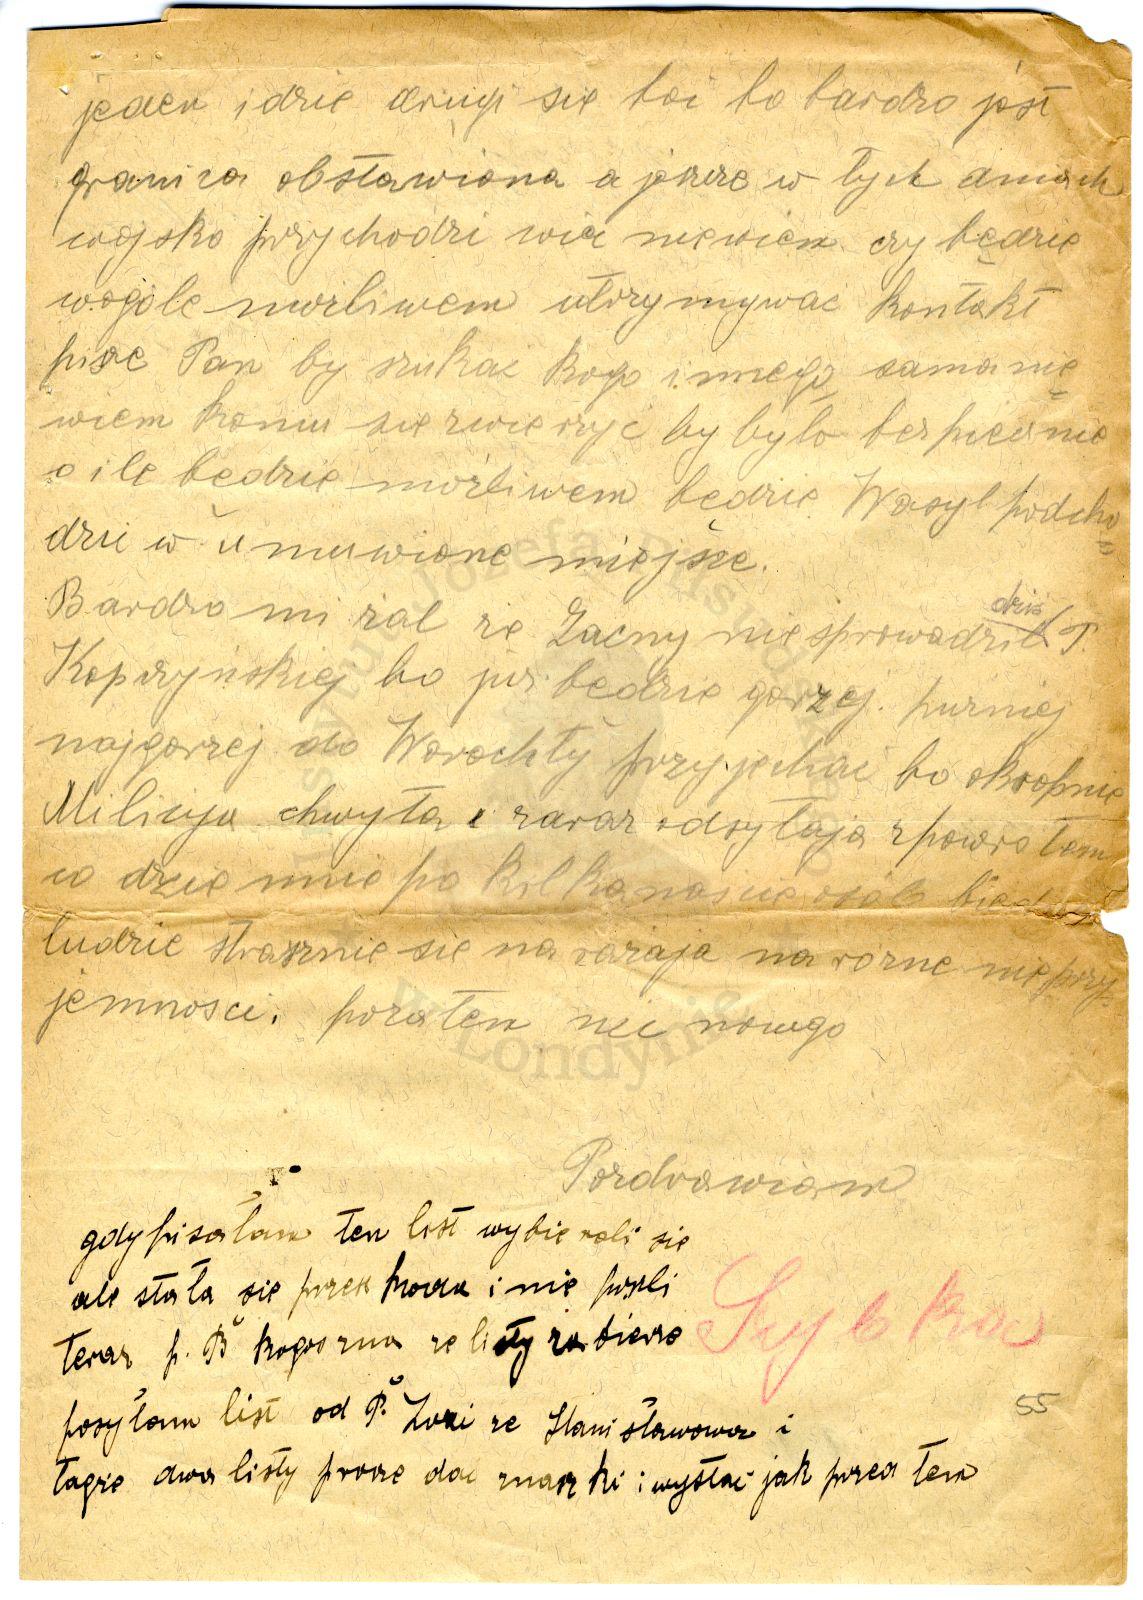 jeden idzie drugi sie boi bo bardzo jest
granica obstawiona a jeszcze w tych dniach
wojsko przychodzi wiec niewiem czy będzie
wogóle możliwem utrzymywac kontakt
pisze Pan by szukac kogo innego sama nie
wiem komu sie zwierzyc by bylo bespiecznie
o ile będzie możliwem będzie Wasyl podcho=
dził w umuwione miejsze.
Bardzo mi żal ze Zacny nie sprowadził dziś P.
Kopczyńskiej bo już będzie gorzej. purniej
najgorzej do Worochty przyjechać bo okropnie
Milicyja chwyta i zaraz odsyłaja zpowrotem
co dziennie po kilkanascie osób biedni
ludzie strasznie sie narażaja na rózne nieprzy
jemnosci. pozatem nic nowego
Pozdrawiam
gdy pisałam ten list wybierali sie
ale stała sie przeszkoda i nie poszli
teraz p. B kogos zna ze listy zabierze
Szybka
posyłam list od P. Zuzi ze Stanisławowa i
tagże dwa listy prosze dac znaczki i wysłac jak przed tem
55
Instytut Józefa Piłsudskiego
w Londynie